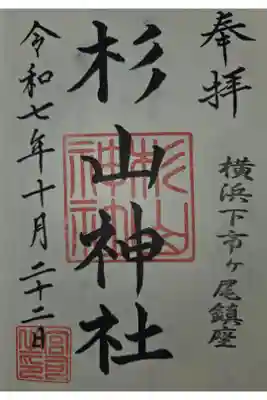 奉拝
横浜下市ヶ尾鎮座
杉山神社
杉山神社
令和七年十月二十二日